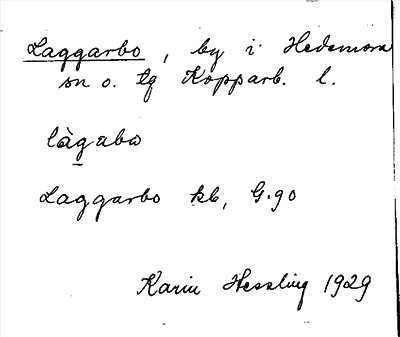 Laggarbo, by i Hedemora
sn o. tg Kopparb. l.
làgabo
Laggarbo kb, G.90
Karin Hessling 1929